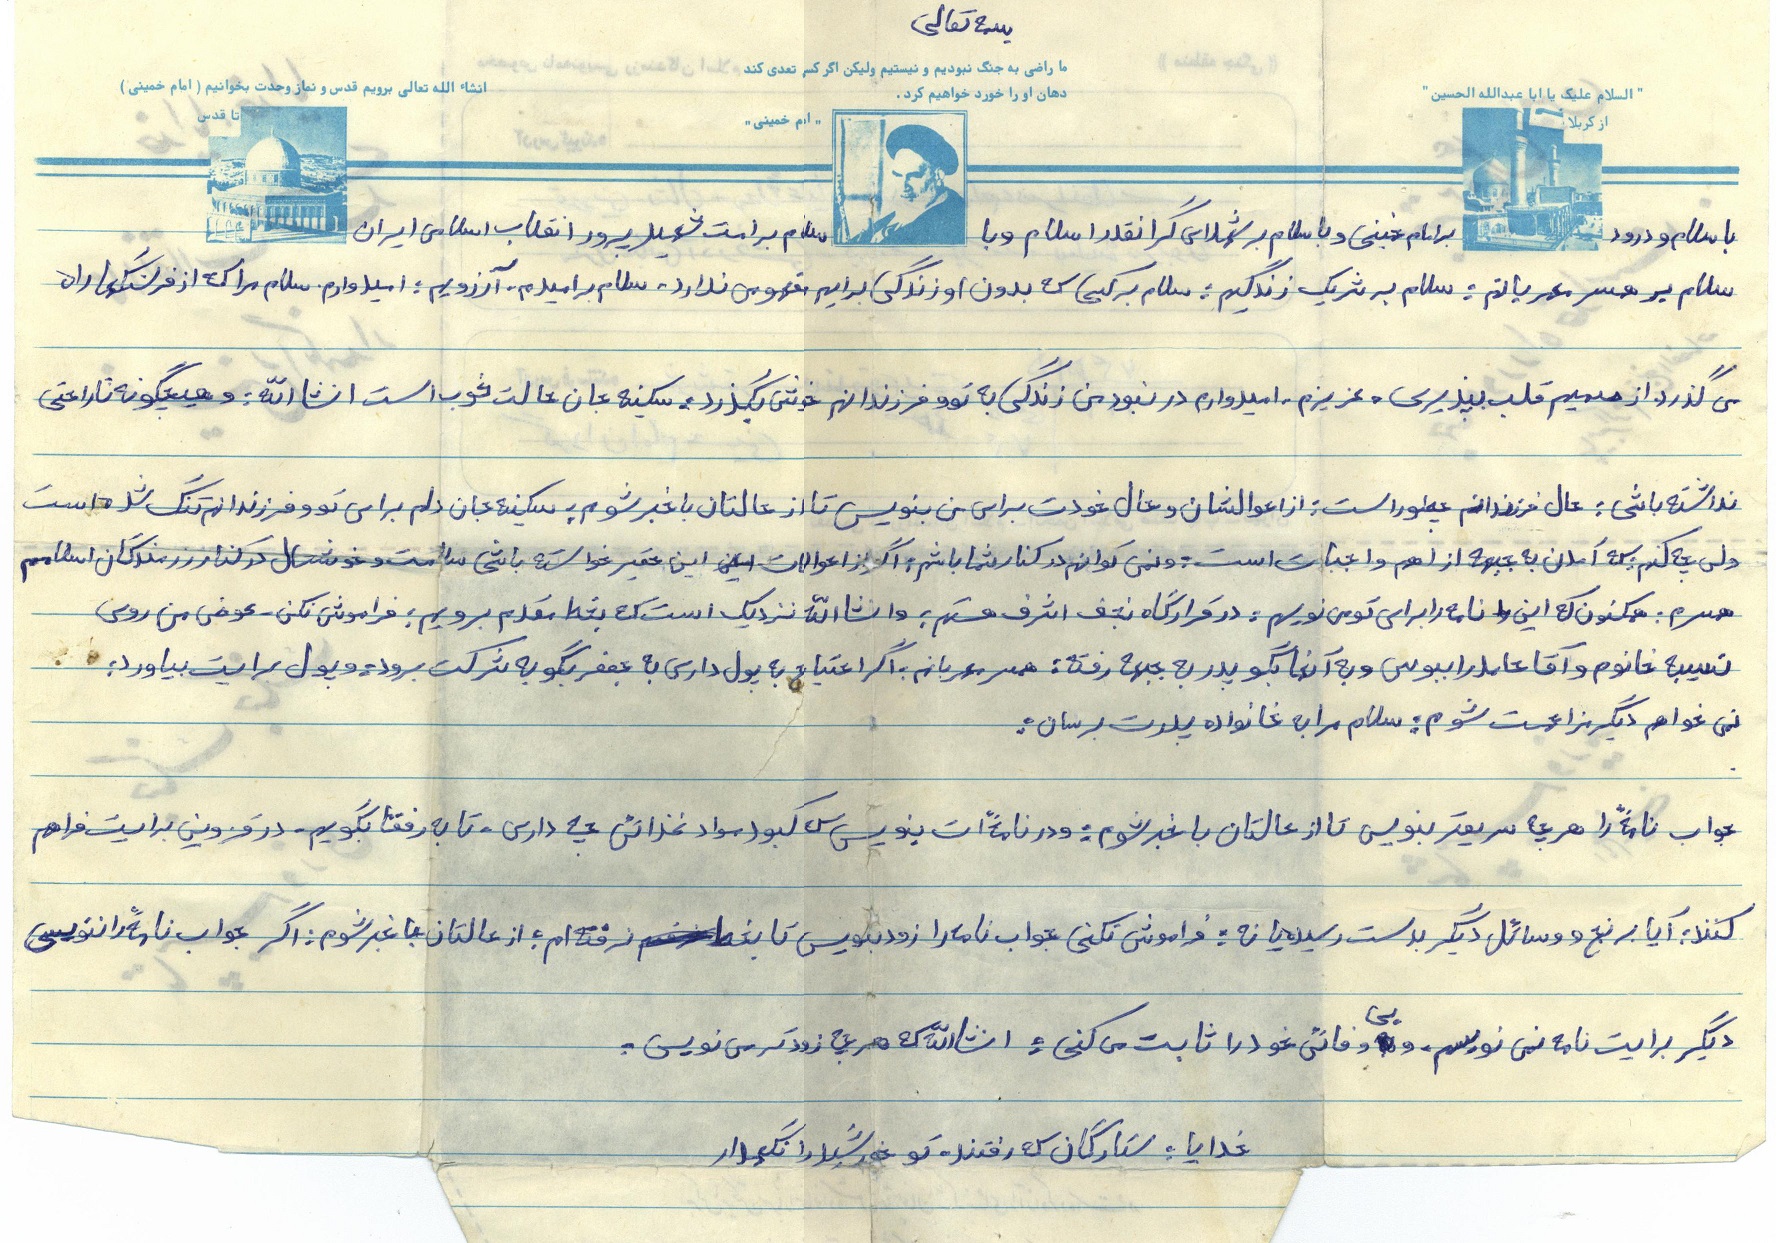 بسمه تعالی
ما راضی به جنگ نبودیم و نیستیم ولیکن اگر کسی تعدی کند
دهان او را خورد خواهیم کرد .
" امام خمینی "
انشاء الله تعالی برویم قدس و نماز وحدت بخوانیم ( امام خمینی )
تا قدس
" السلام علیک یا ابا عبدالله الحسین "
از کربلا
با سلام و درود بر امام خمینی و با سلام بر شهدای گرانقدر اسلام و با سلام بر امت شهید پرور انقلاب اسلامی ایران
سلام بر همسر مهربانم ؛ سلام بر شریک زندگیم ؛ سلام بر کسی که بدون او زندگی برایم مفهومی ندارد . سلام بر امیدم . آرزویم ؛ امیدوارم سلام مرا که از فرسنگها راه
می گذرد از صمیم قلب بپذیری . عزیزم . امیدوارم در نبود من زندگی به تو و فرزندانم خوش بگذرد ؛ سکینه جان حالت خوب است انشاالله ؛ و هیچگونه ناراحتی
نداشته باشی ؛ حال فرزندانم چطور است ؛ از احوالشان و حال خودت برای من بنویس تا از حالتان با خبر شوم ؛ سکینه جان دلم برای تو و فرزندانم تنگ شده است
ولی چه کنم که آمدن به جبهه از اهم واجبات است ؛ و نمی توانم در کنار شما باشم ؛ اگر از احوالات این حقیر خواسته باشی سلامت و خوشحال در کنار رزمندگان اسلامم
همسرم ؛ هم اکنون که این نامه را برای تو می نویسم ؛ در قرارگاه نجف اشرف هستم ؛ و انشاالله نزدیک است که بخط مقدم برویم ؛ فراموش نکن . عوض من روی
نسیبه خانوم و آقا حامد را ببوس و به آنها بگو پدر به جبهه رفته ؛ همسر مهربانم ؛ اگر احتیاج به پول داری به جعفر بگو به شرکت برود ؛ و پول برایت بیاورد ؛
نمی خواهم دیگر مزاحمت شوم ؛ سلام مرا به خانواده پدرت برسان ؛
جواب نامهٔ را هر چه سریعتر بنویس تا از حالتان با خبر شوم ؛ و در نامهٔ ات بنویس که کمبود مواد غذائی چه داری . تا به رفقا بگویم . در قزوین برایت فراهم
کنند ؛ آیا برنج و وسائل دیگر بدست رسیده یا نه ؛ فراموش نکنی جواب نامه را زود بنویس تا بخط نرفته ام ؛ از حالتان با خبر شوم ؛ اگر جواب نامهٔ را ننویسی
دیگر برایت نامه نمی نویسم . و بی وفائی خود را ثابت می کنی ؛ انشاالله که هر چه زودتر می نویسی ؛
خدایا ؛ ستارگان که رفتند . تو خورشید را نگهدار